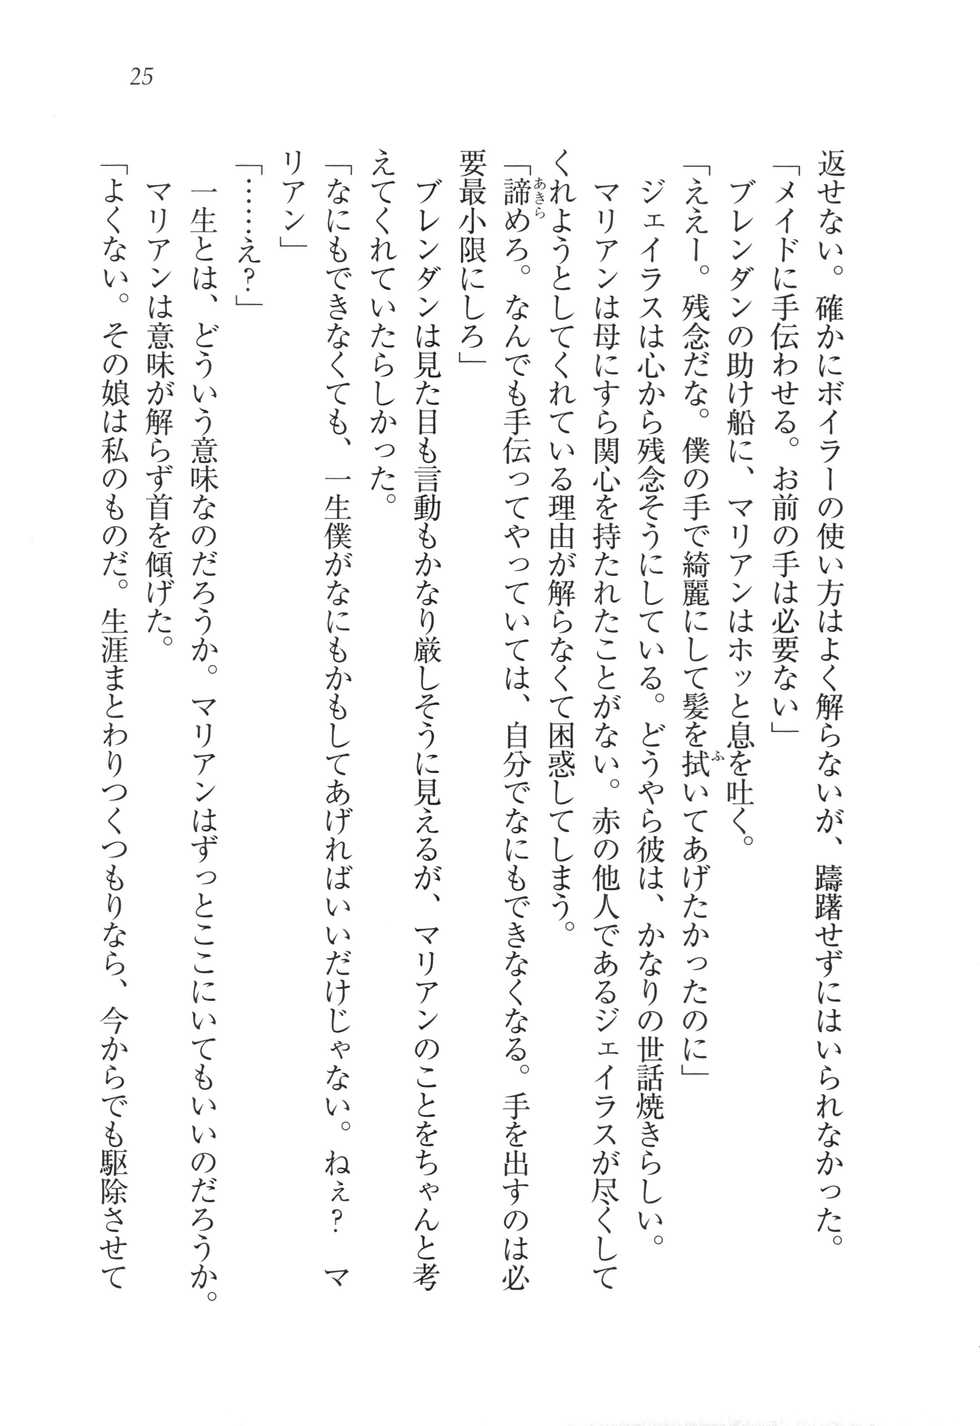 25
返せない。確かにボイラーの使い方はよく解らないが、躊躇せずにはいられなかった。
「メイドに手伝わせる。お前の手は必要ない」
ブレンダンの助け船に、マリアンはホッと息を吐く。
「ええー。残念だな。僕の手で綺麗にして髪を拭いてあげたかったのに」
ふ
ジェイラスは心から残念そうにしている。どうやら彼は、かなりの世話焼きらしい。
マリアンは母にすら関心を持たれたことがない。赤の他人であるジェイラスが尽くして
くれようとしてくれている理由が解らなくて困惑してしまう。
「諦めろ。なんでも手伝ってやっていては、自分でなにもできなくなる。手を出すのは必
あきら
要最小限にしろ」
ブレンダンは見た目も言動もかなり厳しそうに見えるが、マリアンのことをちゃんと考
えてくれていたらしかった。
「なにもできなくても、一生僕がなにもかもしてあげればいいだけじゃない。ねぇ？　マ
リアン」
「……え？」
一生とは、どういう意味なのだろうか。マリアンはずっとここにいてもいいのだろうか。
マリアンは意味が解らず首を傾げた。
「よくない。その娘は私のものだ。生涯まとわりつくつもりなら、今からでも駆除させて